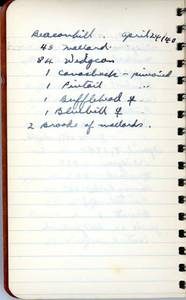 Beaconhill. April 24/40
45 mallard
84 Widgeon
1 canvasback - pinioned
1 Pintail "
1 Bufflehead ♀
1 Bluebill ♀
2 Broods of mallards.